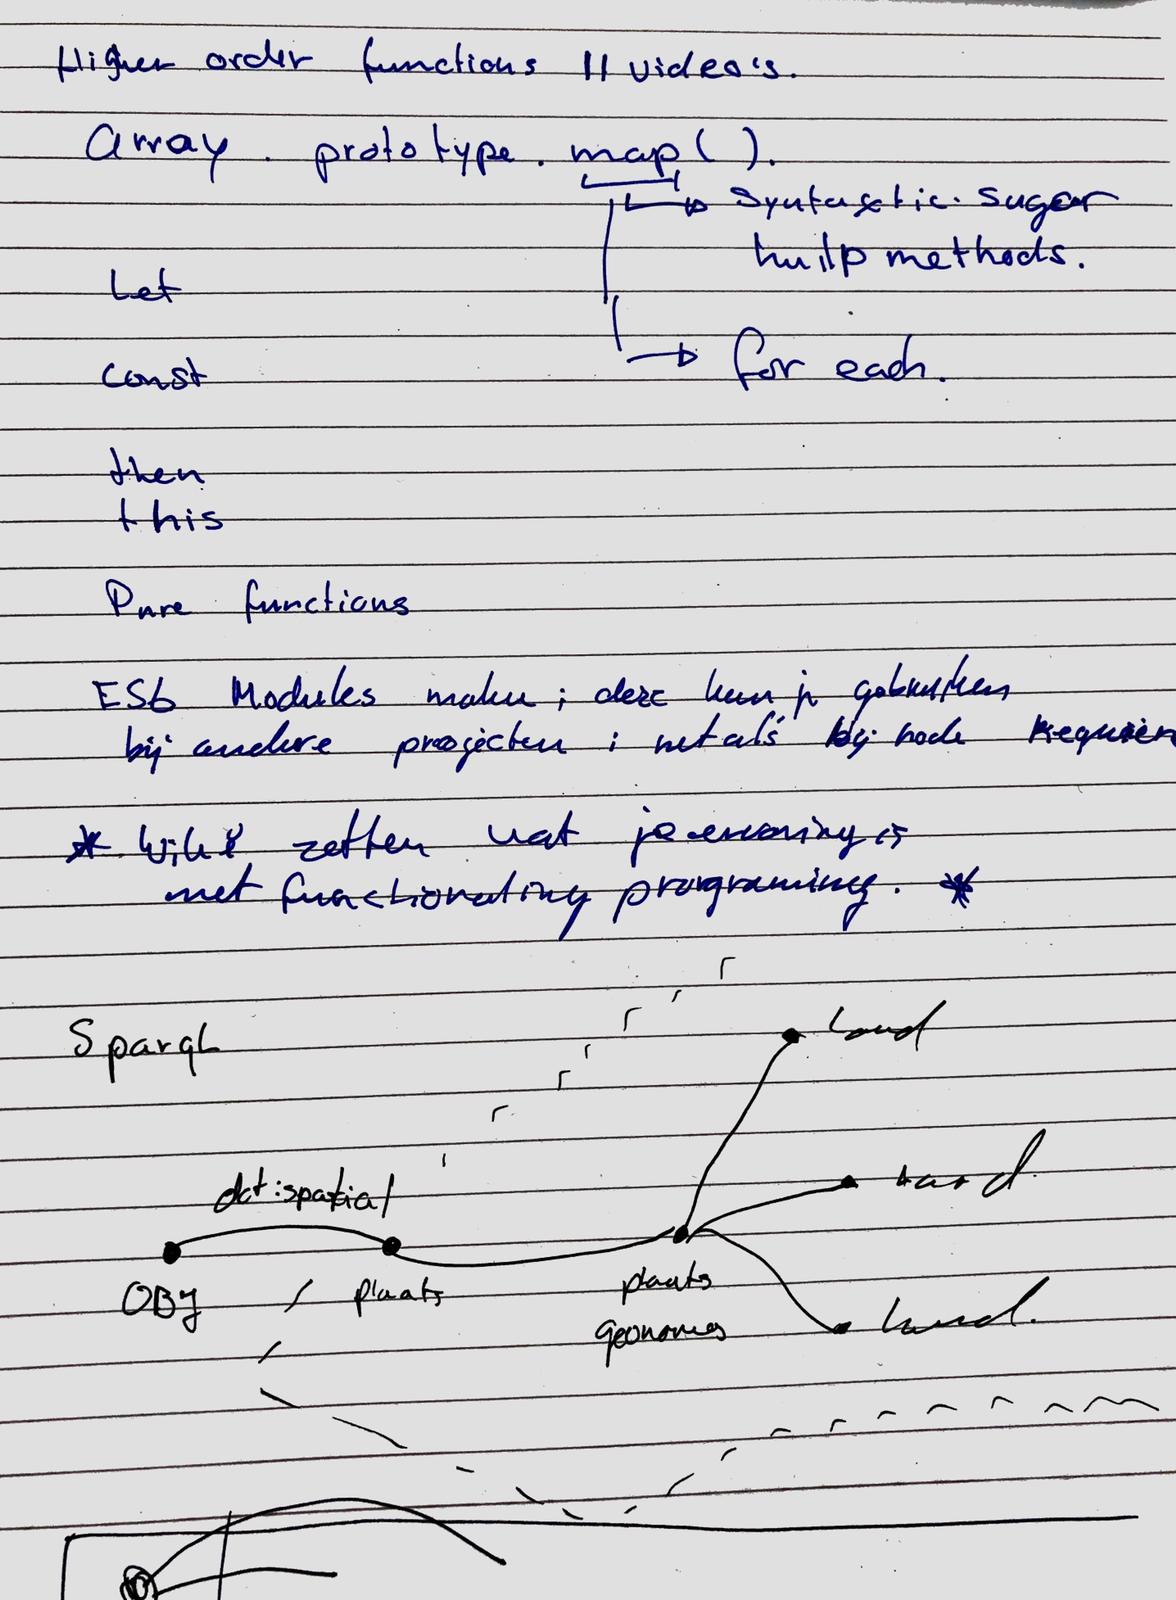 Higher order functions 11 video's.
array . prototype . map( ).
syntactic sugar
hulp methods.
Let
for each.
const
then
this
Pure functions
ES6 Modules maken ; deze kun je gebruiken
bij andere projecten ; net als bij node
* zetten wat je ervaring is
met functionaliny programing. *
SparqL
Land
dct:spatial
Land.
OBJ
plaats
plaats
geonames
Land.